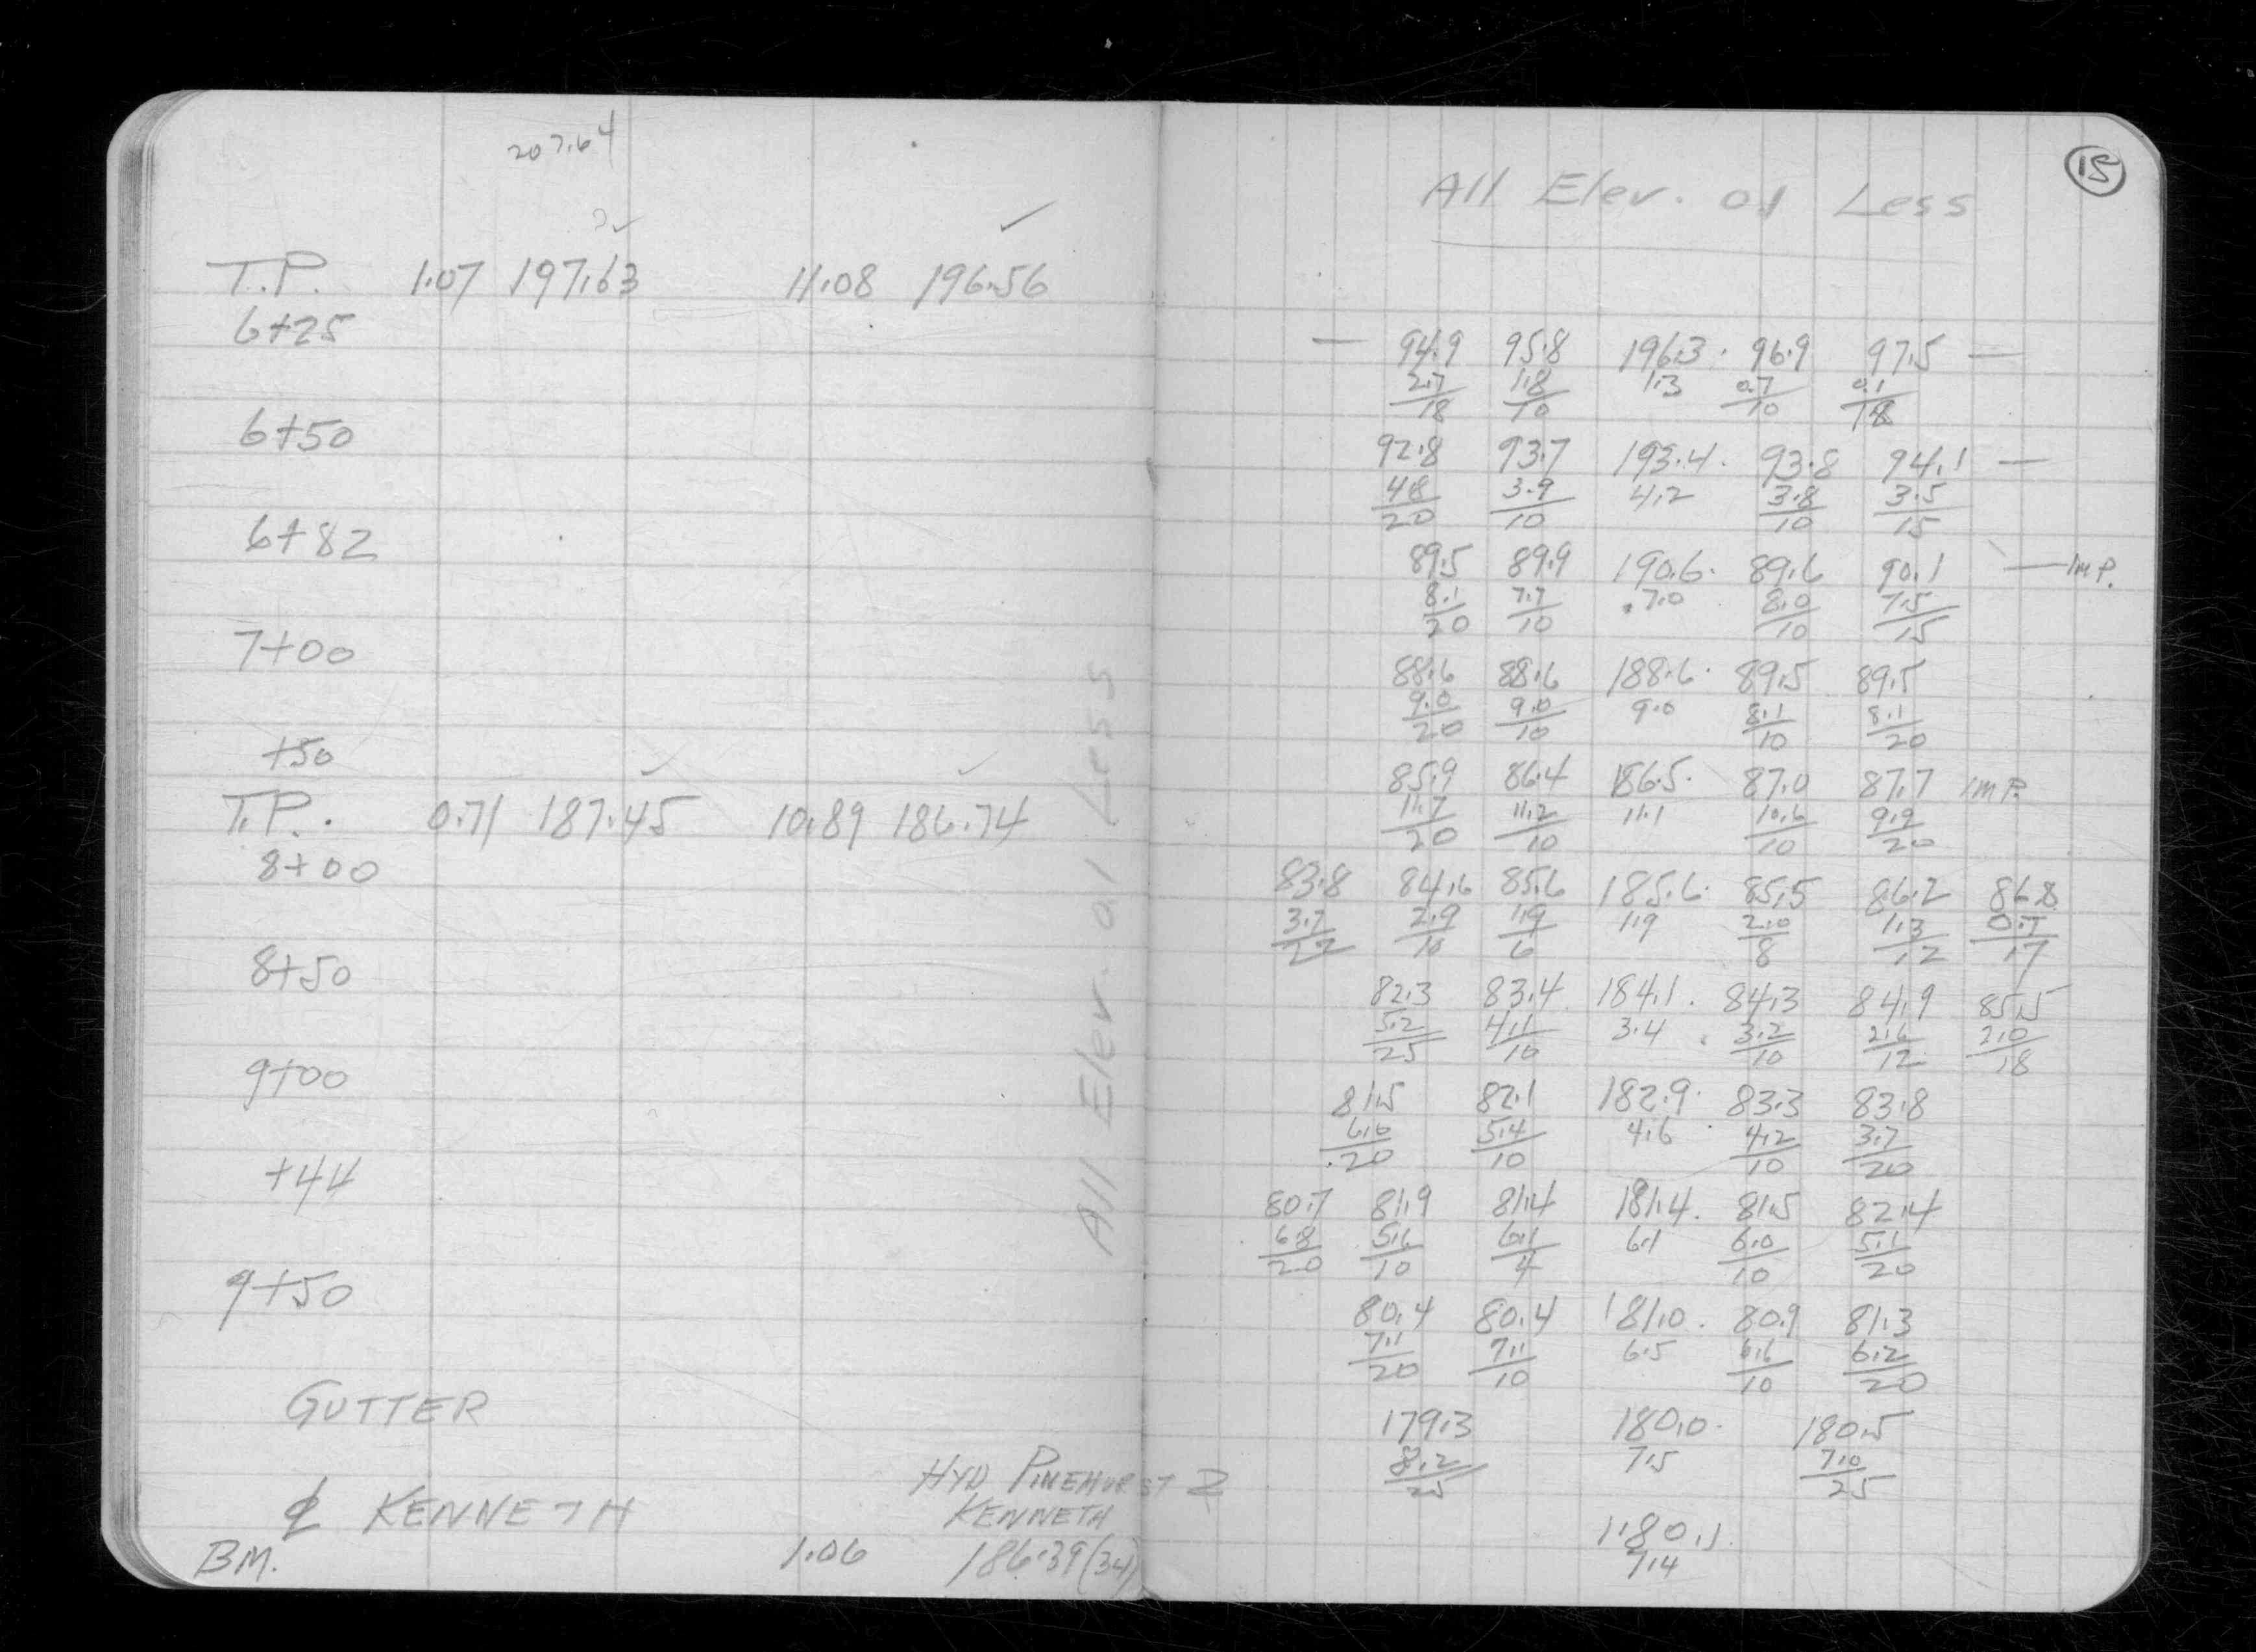 207.64
T.P. 1.07 197.63 11.08 196.56
6+25
6+50
6+82
7+00
+50
T.P. 0.71 187.45 10.89 186.74
8+00
8+50
9+00
+44
9+50
GUTTER
HYD PINEHURST &
℄ KENNETH KENNETH
BM. 1.06 186.39 (34)
All Elev. 0.1 Less
15
All Elev. 0.1 Less
— 94.9 95.8 196.3 96.9 97.5 —
2.7 1.8 1.3 0.7 0.1
18 10 10 18
92.8 93.7 193.4 93.8 94.1 —
4.8 3.9 4.2 3.8 3.5
20 10 10 15
89.5 89.9 190.6 89.6 90.1 — IMP.
8.1 7.7 7.0 8.0 7.5
20 10 10 15
88.6 88.6 188.6 89.5 89.5
9.0 9.0 9.0 8.1 8.1
20 10 10 20
85.9 86.4 186.5 87.0 87.7 IMP.
11.7 11.2 11.1 10.6 9.9
20 10 10 20
83.8 84.6 85.6 185.6 85.5 86.2 86.8
3.7 2.9 1.9 1.9 2.0 1.3 0.7
22 10 6 8 12 17
82.3 83.4 184.1 84.3 84.9 85.5
5.2 4.1 3.4 3.2 2.6 2.0
25 10 10 12 18
81.5 82.1 182.9 83.3 83.8
6.0 5.4 4.6 4.2 3.7
20 10 10 20
80.7 81.9 81.4 181.4 81.5 82.4
6.8 5.6 6.1 6.1 6.0 5.1
20 10 4 10 20
80.4 80.4 181.0 80.9 81.3
7.1 7.1 6.5 6.6 6.2
20 10 10 20
179.3 180.0 180.5
8.2 7.5 7.0
25 25
180.1
7.4